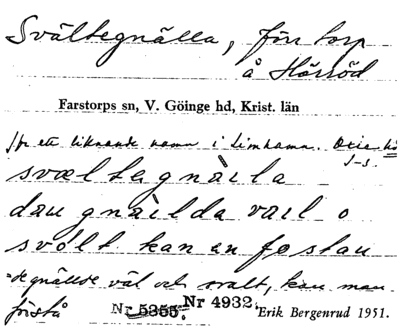 Svältegnälla, förr torp
å Hörröd
Farstorps sn, V. Göinge hd, Krist. län
Jfr ett liknande namn i Limhamn. Oxie hd
svæltegnäila
dau gnäilda vail o
svölt kan en fostau
"de gnällde väl och svalt, kan man
förstå
Nr 5355. Nr 4932. Erik Bergenrud 1951.